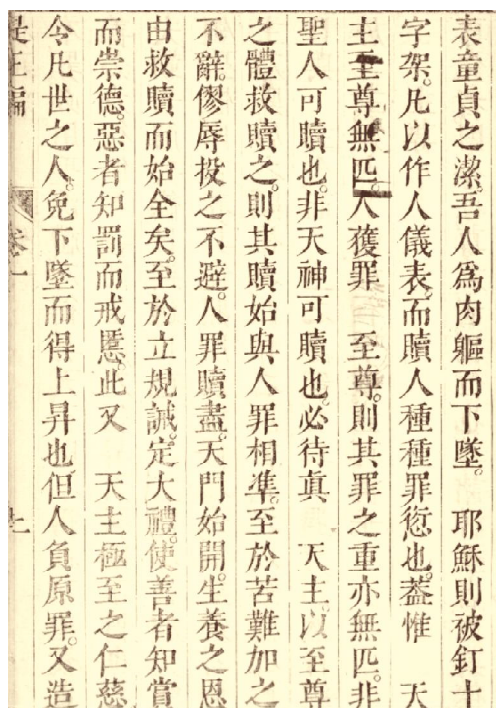 表童貞之潔。吾人爲肉軀而下墜。　耶穌則被釘十
字架。凡以作人儀表。而贖人種種罪愆也。蓋惟　天
主至尊無匹。人獲罪　至尊。則其罪之重亦無匹。非
聖人可贖也。非天神可贖也。必待眞　天主。以至尊
之體救贖之。則其贖始與人罪相準。至於苦難加之
不辭。僇辱投之不避。人罪贖盡。天門始開。生養之恩
由救贖而始全矣。至於立規誡。定大禮。使善者知賞
而崇德。惡者知罰而戒慝。此又　天主極至之仁慈
令凡世之人。免下墜而得上昇也。但人負原罪。又造
卷一